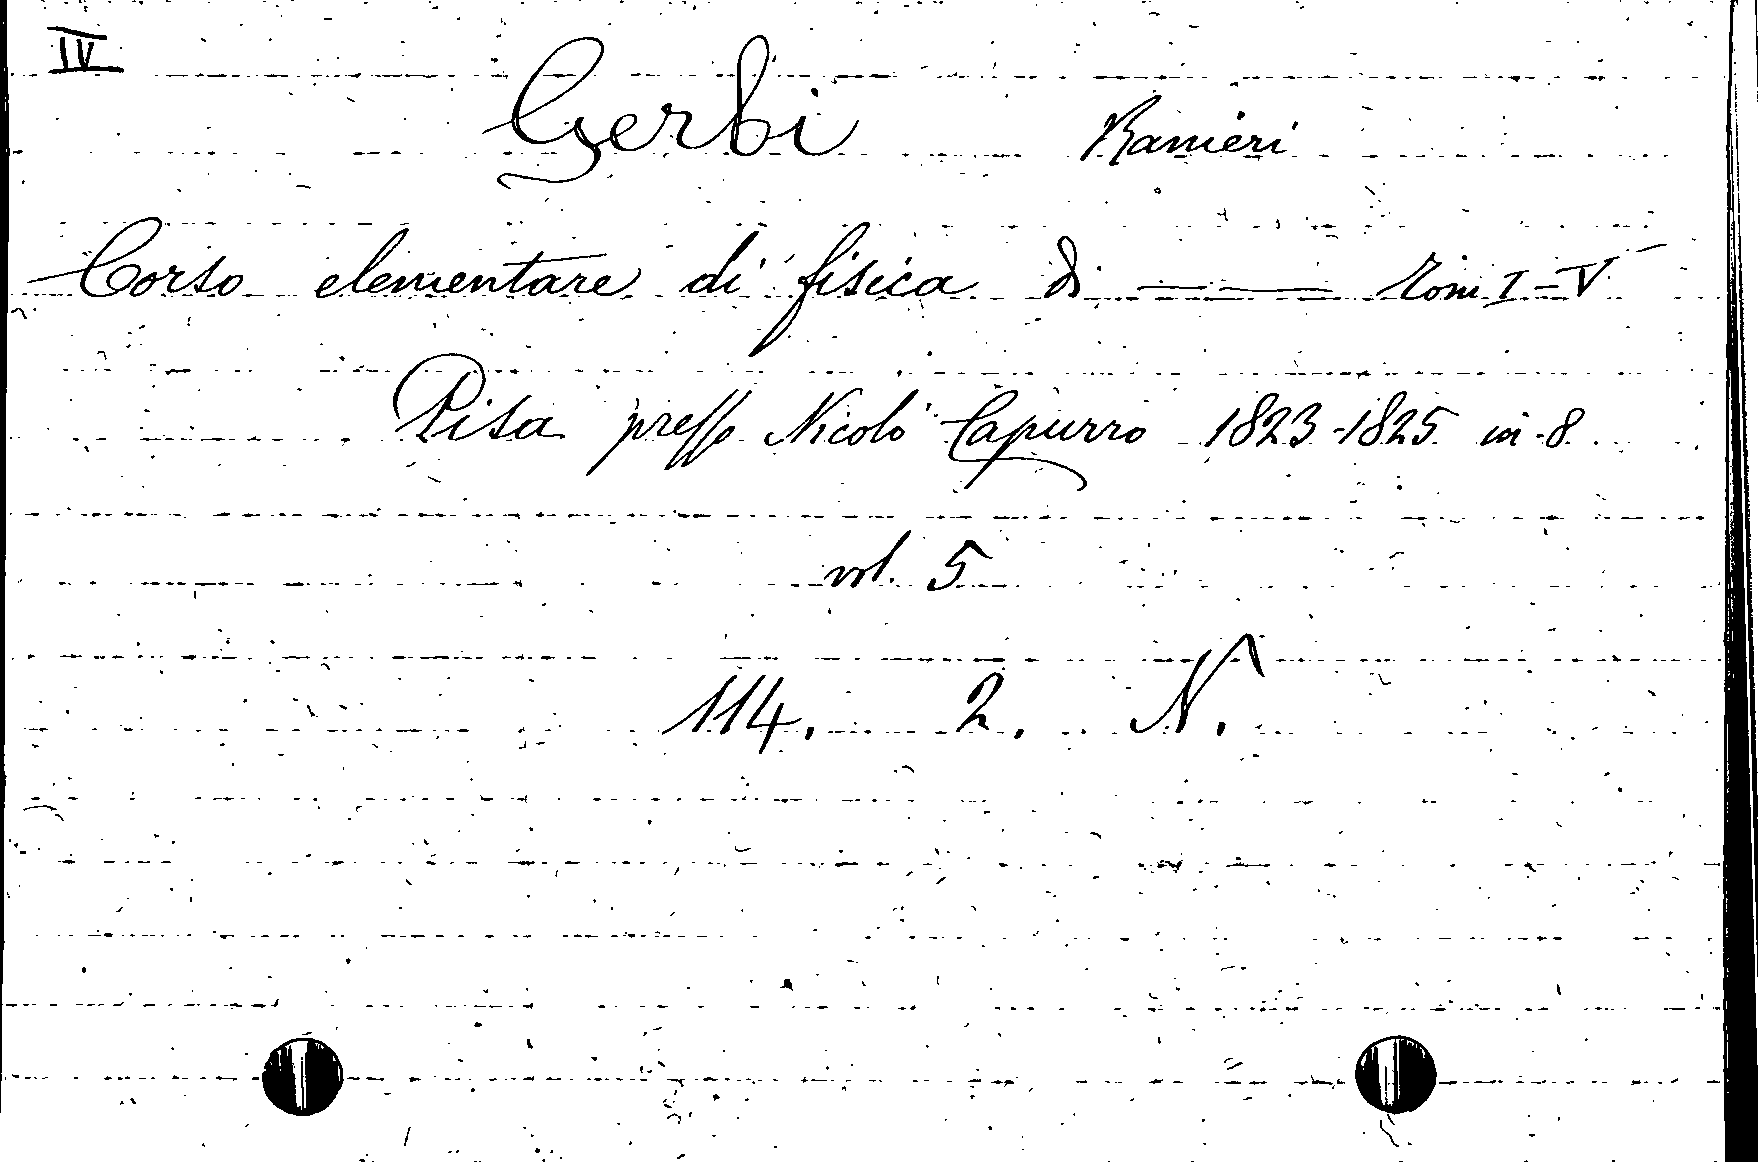 IV
Gerbi Ranieri
Corso elementare di fisica di ——— Tomi I-V
Pisa presso Nicolò Capurro 1823-1825 in-8
vol. 5
114. 2. N.